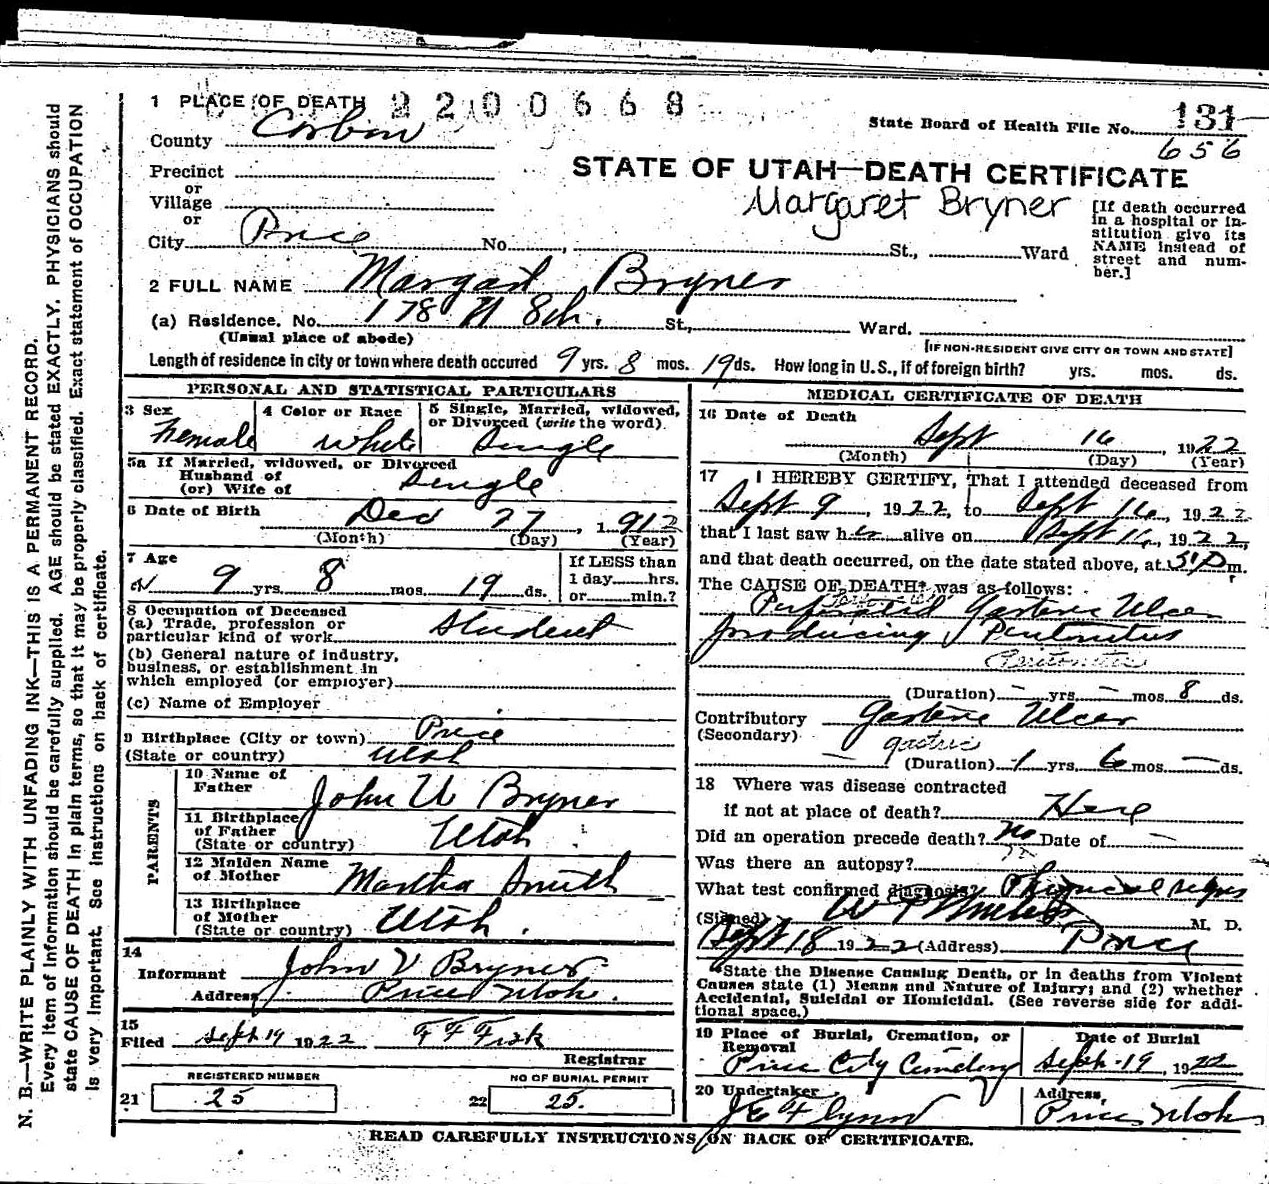 1 PLACE OF DEATH 2200668
State Board of Health File No. 131
656
County Carbon
Precinct
or
Village
or
City Price No. , St., Ward
STATE OF UTAH—DEATH CERTIFICATE
Margaret Bryner
[If death occurred in a hospital or institution give its NAME instead of street and number.]
2 FULL NAME Margaret Bryner
(a) Residence. No. 178 N 8th. St., Ward.
(Usual place of abode)
[IF NON-RESIDENT GIVE CITY OR TOWN AND STATE]
Length of residence in city or town where death occured 9 yrs. 8 mos. 19 ds. How long in U.S., if of foreign birth? yrs. mos. ds.
PERSONAL AND STATISTICAL PARTICULARS
3 Sex Female
4 Color or Race White
5 Single, Married, widowed, or Divorced (write the word) Single
5a If Married, widowed, or Divorced
Husband of
(or) Wife of Single
6 Date of Birth Dec 27, 1912
(Month) (Day) (Year)
7 Age 9 yrs. 8 mos. 19 ds.
If LESS than
1 day hrs.
or min.?
8 Occupation of Deceased
(a) Trade, profession or
particular kind of work Student
(b) General nature of industry,
business, or establishment in
which employed (or employer)
(c) Name of Employer
9 Birthplace (City or town) Price
(State or country) Utah
PARENTS
10 Name of Father John W Bryner
11 Birthplace of Father (State or country) Utah
12 Maiden Name of Mother Martha Smith
13 Birthplace of Mother (State or country) Utah.
14
Informant John V Bryner
Address Price Utah.
15
Filed Sept 19 1922 F F Fisk
Registrar
REGISTERED NUMBER
21 25
NO OF BURIAL PERMIT
22 25.
MEDICAL CERTIFICATE OF DEATH
16 Date of Death
Sept 16, 1922
(Month) (Day) (Year)
17 I HEREBY CERTIFY, That I attended deceased from
Sept 9, 1922, to Sept 16, 1922
that I last saw her alive on Sept 16, 1922,
and that death occurred, on the date stated above, at 5 P m.
The CAUSE OF DEATH* was as follows:
Perforated Gastric Ulcer
producing Peritonitus
Peritonitis
(Duration) – yrs. – mos. 8 ds.
Contributory Gastric Ulcer
(Secondary)
gastric
(Duration) 1 yrs. 6 mos. – ds.
18 Where was disease contracted
if not at place of death? Here
Did an operation precede death? no Date of –
Was there an autopsy?
What test confirmed diagnosis? Physical signs
(Signed) M. D.
Sept 18 1922 (Address) Price
*State the Disease Causing Death, or in deaths from Violent
Causes state (1) Means and Nature of Injury; and (2) whether
Accidental, Suicidal or Homicidal. (See reverse side for addi-
tional space.)
19 Place of Burial, Cremation, or Removal
Price City Cemetery
Date of Burial
Sept. 19, 1922
20 Undertaker
J E Flynn
Address,
Price Utah
READ CAREFULLY INSTRUCTIONS ON BACK OF CERTIFICATE.
N. B.—WRITE PLAINLY WITH UNFADING INK—THIS IS A PERMANENT RECORD.
Every item of information should be carefully supplied. AGE should be stated EXACTLY. PHYSICIANS should
state CAUSE OF DEATH in plain terms, so that it may be properly classified. Exact statement of OCCUPATION
is very important. See instructions on back of certificate.